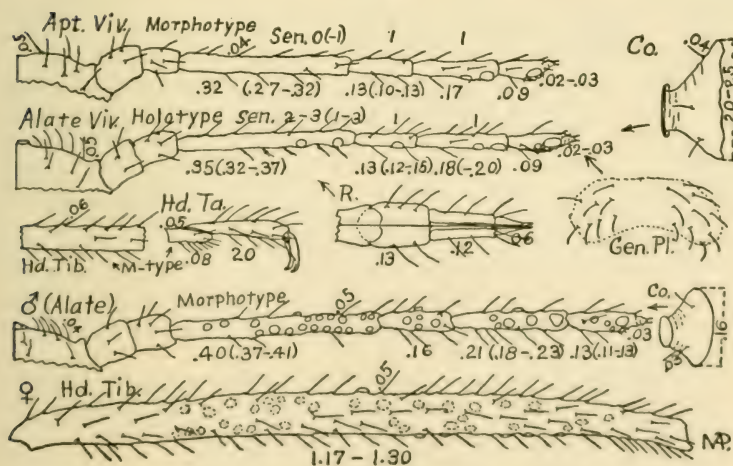 Apt. Viv. Morphotype Sen. 0(-1) 1 1 Co.
.05 .04 .04
.32 (.27-.32) .13(.10-.13) .17 .09 .02-.03 .20-.25
Alate Viv. Holotype Sen. 2-3(1-3) 1 1
.05
.35(.32-.37) .13(.12-.15) .18(-.20) .09 .02-.03
.06 Hd. Ta. R.
.05
Hd. Tib. M-type .08 .20 .13 .12 .06 Gen. Pl.
♂ (Alate) Morphotype .05 Co.
.04 .03 .16
.40(.37-.41) .16 .21(.18-.23) .13(.11-.13) .03
♀ Hd. Tib. .05
1.17-1.30